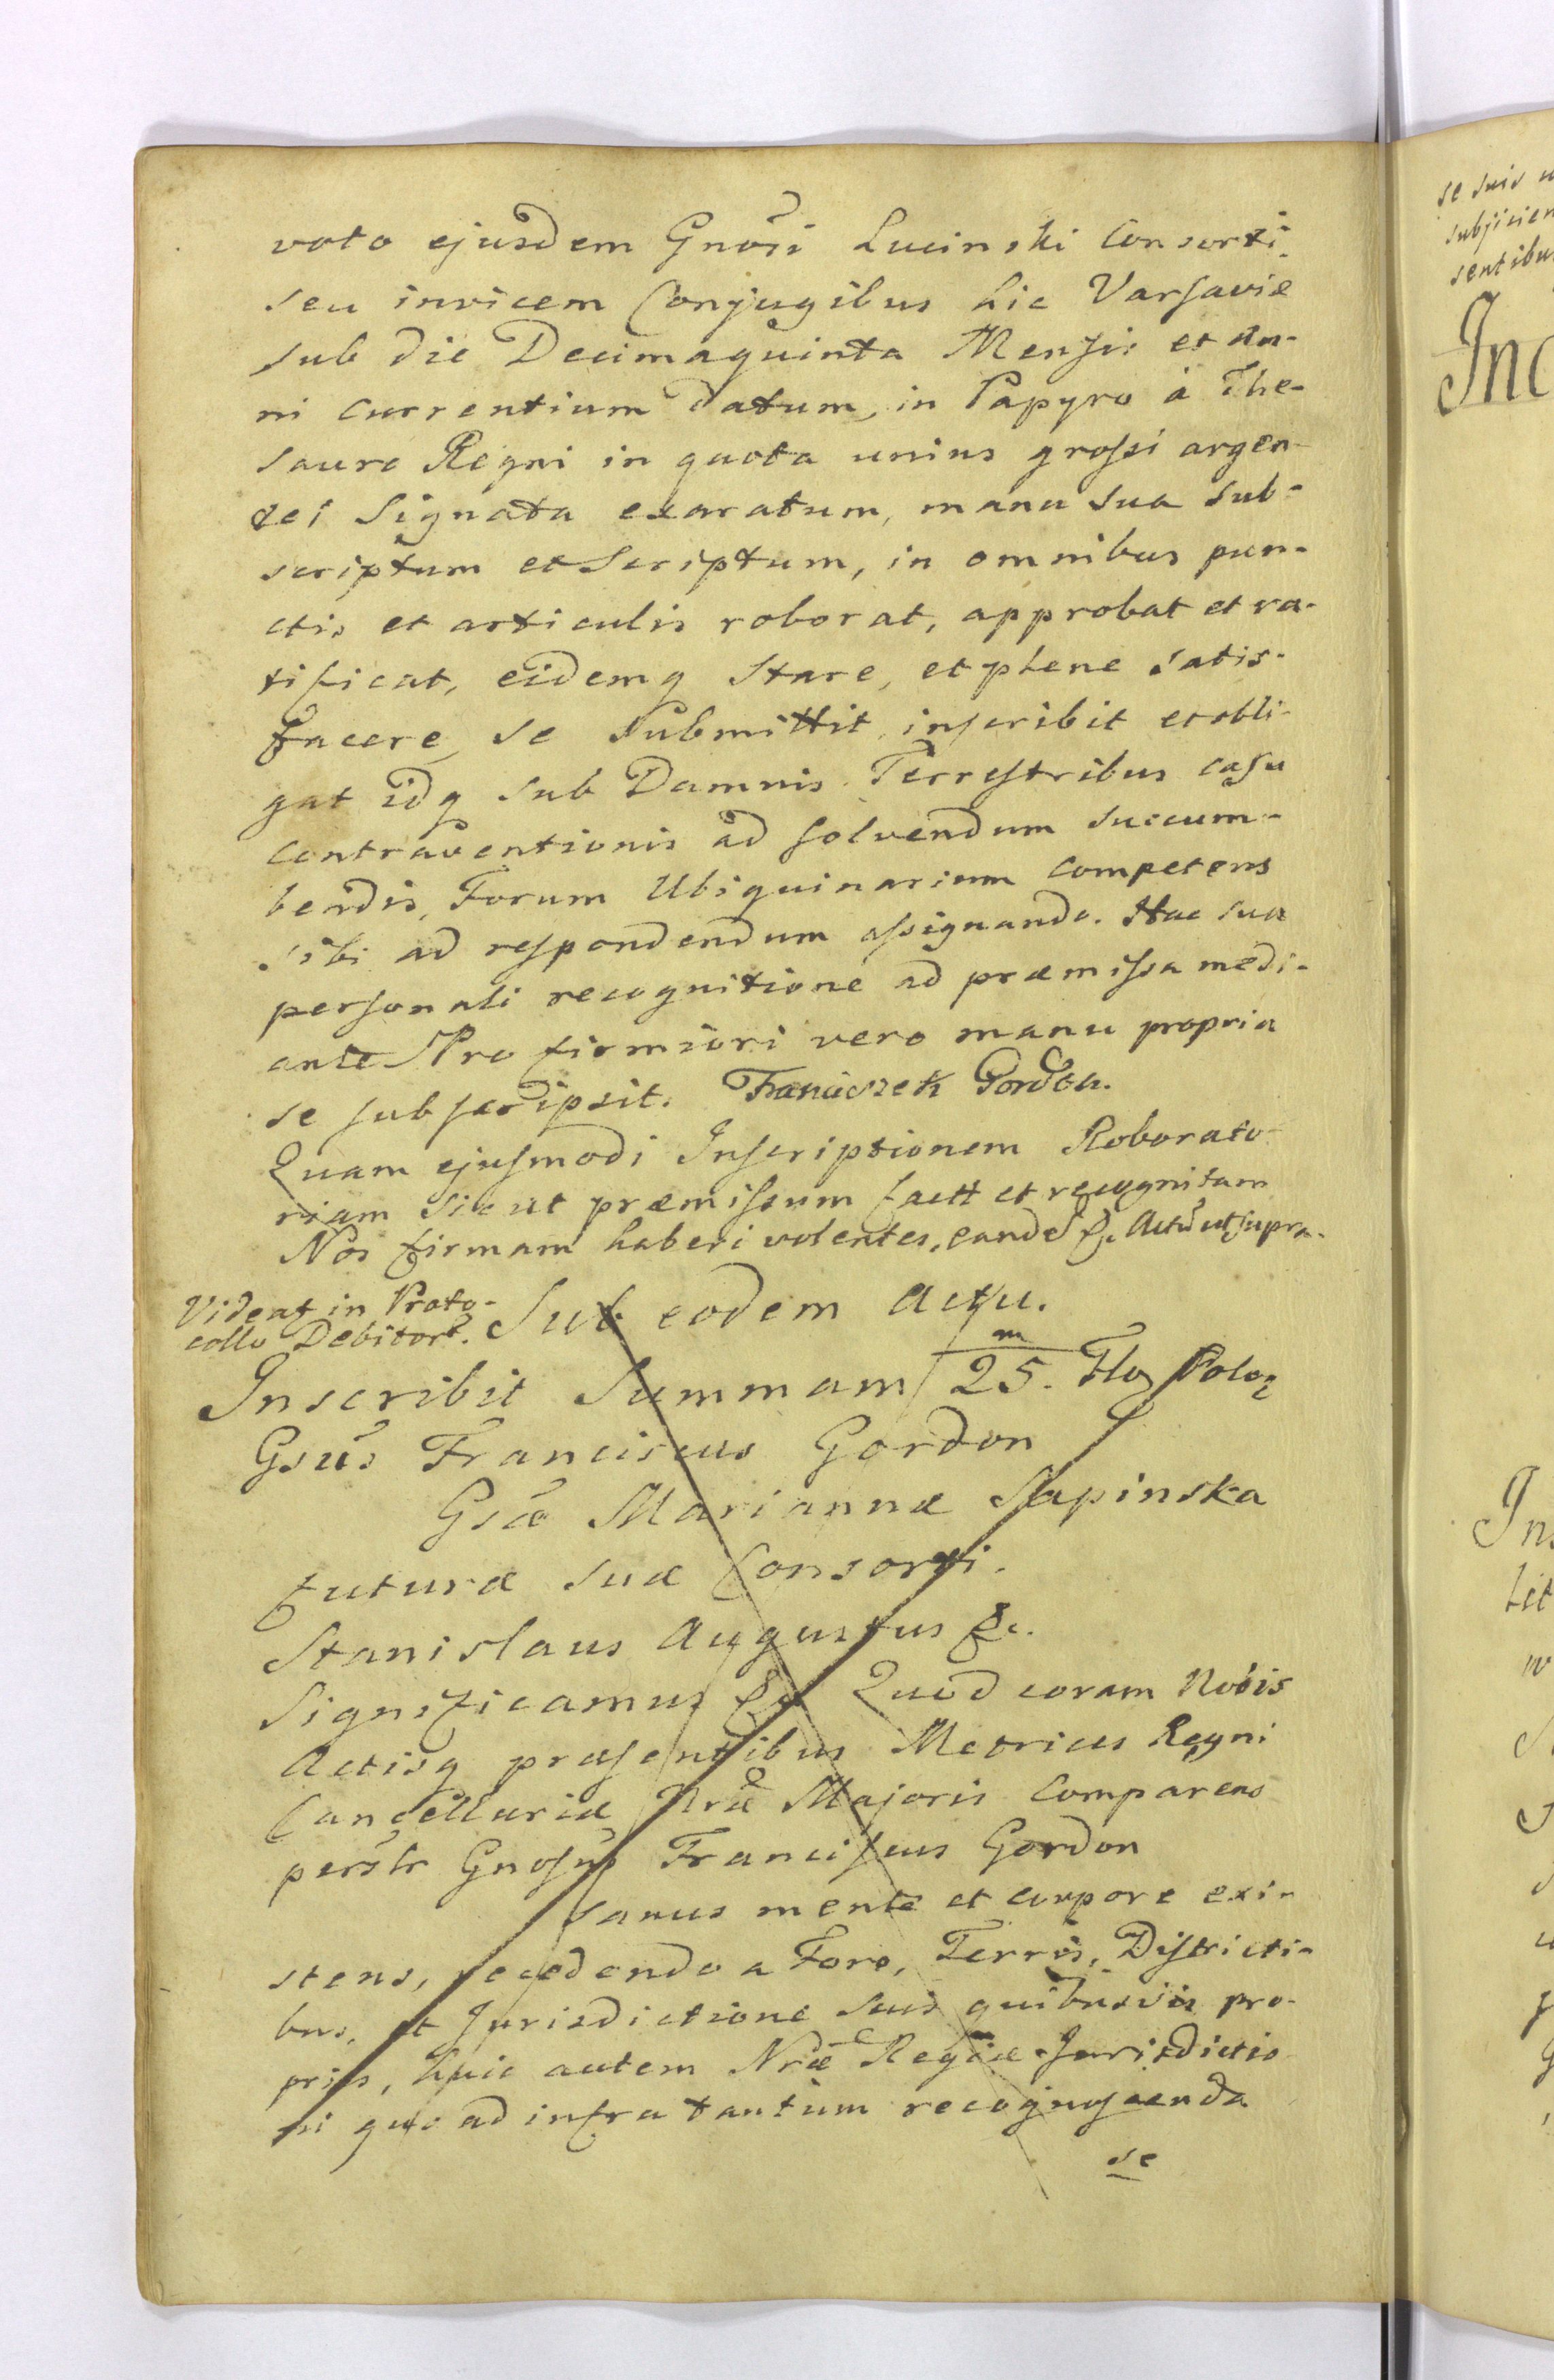 voto ejusdem Gnosi Lucinski Consorti
seu invicem Conjugibus hic Varsaviæ
sub die Decimaquinta Mensis et An-
ni currentium datum, in Papyro á The-
sauro Regni in quota unius grossi argen-
tei Signata exaratum, manu sua sub-
scriptum et Scriptum, in omnibus pun-
ctis et articulis roborat, approbat et ra-
tificat, eidemq stare, et plene satis-
facere, se submittit, inscribit et obli-
gat idq sub Damnis Terrestribus casu
contraventionis ad solvendum succum-
bendis, Forum Ubiquinarium competens
sibi ad respondendum assignando. Hac sua
personali recognitione ad præmissa medi-
ante Pro firmiori vero manu propria
se subscripsit. Franciszek Gordon.
Quam ejusmodi Inscriptionem Roborato-
riam sicut præmissum factt et recognitam
Nos firmam haberi volentes, eandē &c. Actū ut supra.
Videat in Proto-
collo Debitor.
Sub eodem Actu.
Inscribit Summam m/25. Flo Polo
Gsūs Franciscus Gordon
Gsæ Mariannæ Sapinska
futuræ suæ Consorti.
Stanislaus Augustus &c.
Significamus &c Quod coram Nobis
Actisq præsentibus Metrices Regni
Cancellariæ Nræ Majoris Comparens
perslr Gnosus Franciscus Gordon
sanus mente et corpore exi-
stens, recedendo a Foro, Terris, Districti-
bus, et Jurisdictione suis quibusvis pro-
priis, huic autem Nræ Regiæ Jurisdictio
ni quo ad infra tantum recognoscenda
se
se suis
subjicien
sentibus
Ins